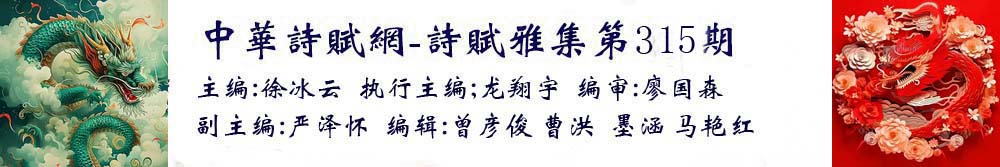 中華詩賦網-詩賦雅集第315期
主编:徐冰云 执行主编;龙翔宇 编审:廖国森
副主编:严泽怀 编辑:曾彦俊 曹洪 墨涵 马艳红